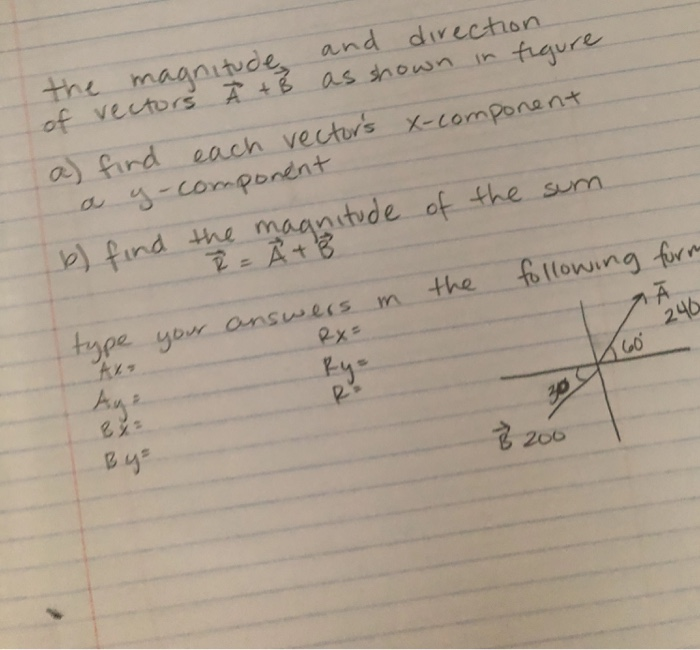 the magnitude, and direction
of vectors A⃗ + B⃗ as shown in figure
a) find each vector's x-component
a y-component
b) find the magnitude of the sum
R⃗ = A⃗ + B⃗
type your answers in the following form
Ax=
Ay=
Bx=
By=
Rx=
Ry=
R=
A⃗
240
60°
30
B⃗ 200